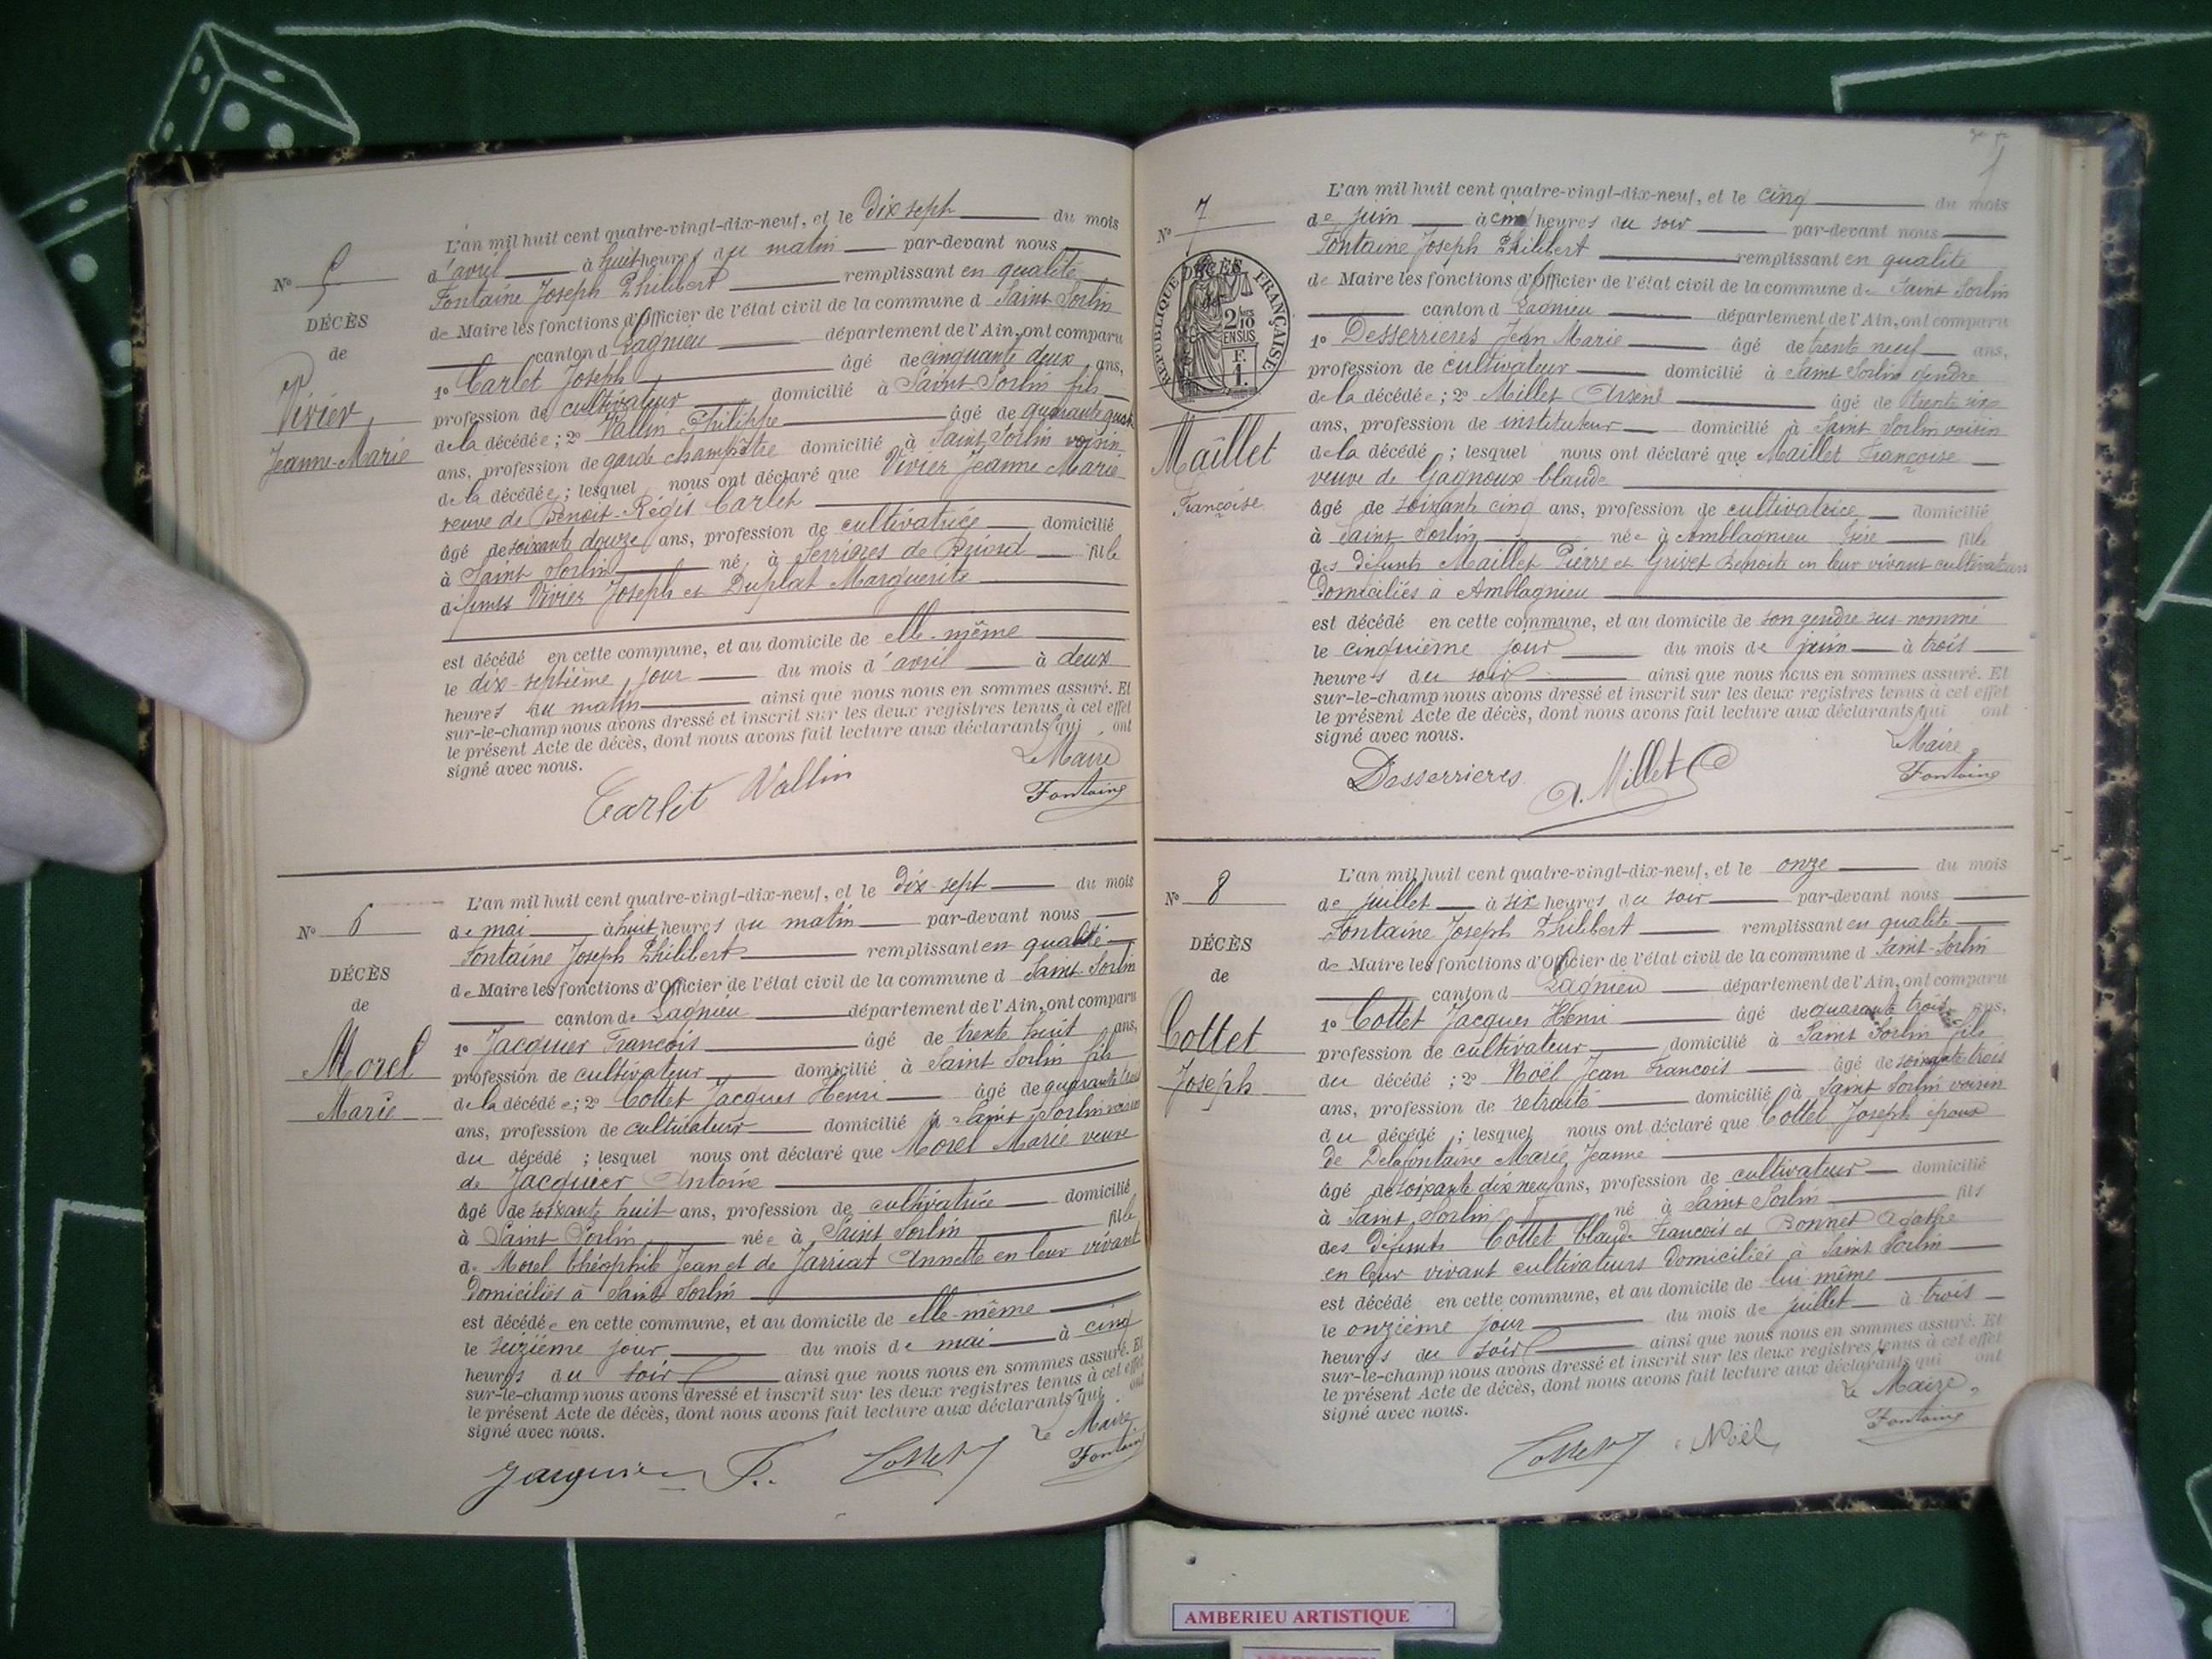 N° 5
DÉCÈS
de
Vivier
Jeanne-Marie
L'an mil huit cent quatre-vingt-dix-neuf, et le Dix sept du mois
d'avril à huit heures du matin par-devant nous
Fontaine Joseph Philibert remplissant en qualité
de Maire les fonctions d'Officier de l'état civil de la commune d Saint Sorlin
canton d Lagnieu département de l'Ain, ont comparu
1° Carlet Joseph âgé de cinquante deux ans,
profession de cultivateur domicilié à Saint-Sorlin fils
de la décédée ; 2° Vallin Philippe âgé de quarante quatre
ans, profession de garde champêtre domicilié à Saint Sorlin voisin
de la décédée ; lesquel nous ont déclaré que Vivier Jeanne Marie
veuve de Benoit-Régis Carlet
âgé de soixante douze ans, profession de cultivatrice domicilié
à Saint Sorlin né à Serrières de Briord fille
défunts Vivier Joseph et Duplat Marguerite
est décédé en cette commune, et au domicile de elle-même
le dix-septième jour du mois d'avril à deux
heures du matin ainsi que nous nous en sommes assuré. Et
sur-le-champ nous avons dressé et inscrit sur les deux registres tenus à cet effet
le présent Acte de décès, dont nous avons fait lecture aux déclarants qui ont
signé avec nous.
Le Maire
Carlet Vallin Fontaine
N° 6
DÉCÈS
de
Morel
Marie
L'an mil huit cent quatre-vingt-dix-neuf, et le Dix-sept du mois
de mai à huit heures du matin par-devant nous
Fontaine Joseph Philibert remplissant en qualité
de Maire les fonctions d'Officier de l'état civil de la commune d Saint-Sorlin
canton de Lagnieu département de l'Ain, ont comparu
1° Jacquier François âgé de trente huit ans,
profession de cultivateur domicilié à Saint Sorlin fils
de la décédée ; 2° Cottet Jacques Henri âgé de quarante trois
ans, profession de cultivateur domicilié à Saint Sorlin voisin
du décédé ; lesquel nous ont déclaré que Morel Marie veuve
de Jacquier Antoine
âgé de soixante huit ans, profession de cultivatrice domicilié
à Saint Sorlin née à Saint Sorlin fille
de Morel théophile Jean et de Jarriat Annette en leur vivant
Domiciliés à Saint Sorlin
est décédée en cette commune, et au domicile de elle-même
le seizième jour du mois de mai à cinq
heures du soir ainsi que nous nous en sommes assuré. Et
sur-le-champ nous avons dressé et inscrit sur les deux registres tenus à cet effet
le présent Acte de décès, dont nous avons fait lecture aux déclarants qui ont
signé avec nous.
Le Maire
Jacquier F. Cottet J Fontaine
N° 7
DÉCÈS
de
RÉPUBLIQUE FRANÇAISE
2/10
EN SUS
F.
1.
Maillet
Françoise
L'an mil huit cent quatre-vingt-dix-neuf, et le cinq du mois
de juin à cinq heures du soir par-devant nous
Fontaine Joseph Philibert remplissant en qualité
de Maire les fonctions d'Officier de l'état civil de la commune de Saint Sorlin
canton d Lagnieu département de l'Ain, ont comparu
1° Desserrieres Jean Marie âgé de trente neuf ans,
profession de cultivateur domicilié à Saint Sorlin gendre
de la décédée ; 2° Millet Arsène âgé de trente six
ans, profession de instituteur domicilié à Saint Sorlin voisin
de la décédé ; lesquel nous ont déclaré que Maillet Françoise
veuve de Gagnoux Claude
âgé de soixante cinq ans, profession de cultivatrice domicilié
à Saint Sorlin née à Amblagnieu Isère fille
des défunts Maillet Pierre et Grivet Benoite en leur vivant cultivateurs
Domiciliés à Amblagnieu
est décédé en cette commune, et au domicile de son gendre sus-nommé
le cinquième jour du mois de juin à trois
heures du soir ainsi que nous nous en sommes assuré. Et
sur-le-champ nous avons dressé et inscrit sur les deux registres tenus à cet effet
le présent Acte de décès, dont nous avons fait lecture aux déclarants qui ont
signé avec nous.
Le Maire
Desserrieres A. Millet Fontaine
N° 8
DÉCÈS
de
Cottet
Joseph
L'an mil huit cent quatre-vingt-dix-neuf, et le onze du mois
de juillet à six heures du soir par-devant nous
Fontaine Joseph Philibert remplissant en qualité
de Maire les fonctions d'Officier de l'état civil de la commune d Saint-Sorlin
canton d Lagnieu département de l'Ain, ont comparu
1° Cottet Jacques Henri âgé de quarante trois ans,
profession de cultivateur domicilié à Saint Sorlin fils
du décédé ; 2° Noël Jean François âgé de soixante trois
ans, profession de retraité domicilié à Saint Sorlin voisin
du décédé ; lesquel nous ont déclaré que Cottet Joseph époux
de Delafontaine Marie Jeanne
âgé de soixante dix neuf ans, profession de cultivateur domicilié
à Saint Sorlin né à Saint Sorlin fils
des Défunts Cottet Claude François et Bonnet Agathe
en leur vivant cultivateurs Domiciliés à Saint Sorlin
est décédé en cette commune, et au domicile de lui même
le onzième jour du mois de juillet à trois
heures du soir ainsi que nous nous en sommes assuré. Et
sur-le-champ nous avons dressé et inscrit sur les deux registres tenus à cet effet
le présent Acte de décès, dont nous avons fait lecture aux déclarants qui ont
signé avec nous.
Le Maire
Cottet J Noël Fontaine
AMBERIEU ARTISTIQUE